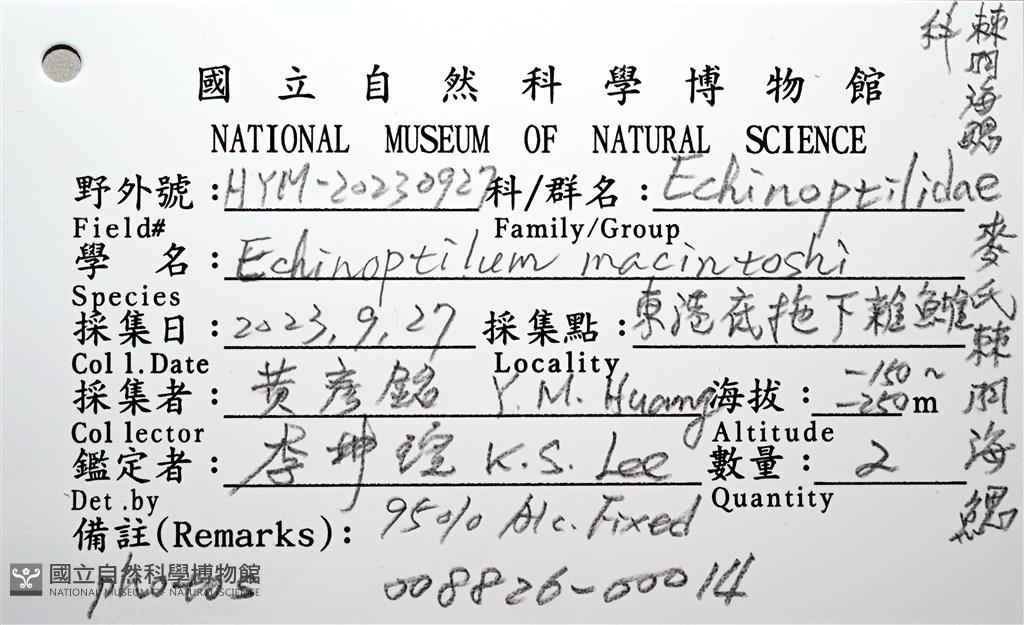 國立自然科學博物館
NATIONAL MUSEUM OF NATURAL SCIENCE
野外號：HYM-20230927 科/群名：Echinoptilidae
Field# Family/Group
學 名：Echinoptilum macintoshi
Species
採集日：2023.9.27 採集點：東港底拖下雜鱲
Coll.Date Locality
採集者：黄彥銘 Y.M. Huang 海拔：-150~-250m
Collector Altitude
鑑定者：李坤瑄 K.S. Lee 數量：2
Det.by Quantity
備註(Remarks)：95% Alc. Fixed
photos 008826-00014
棘海鰓科
麥氏棘海鰓
國立自然科學博物館
NATIONAL MUSEUM OF NATURAL SCIENCE